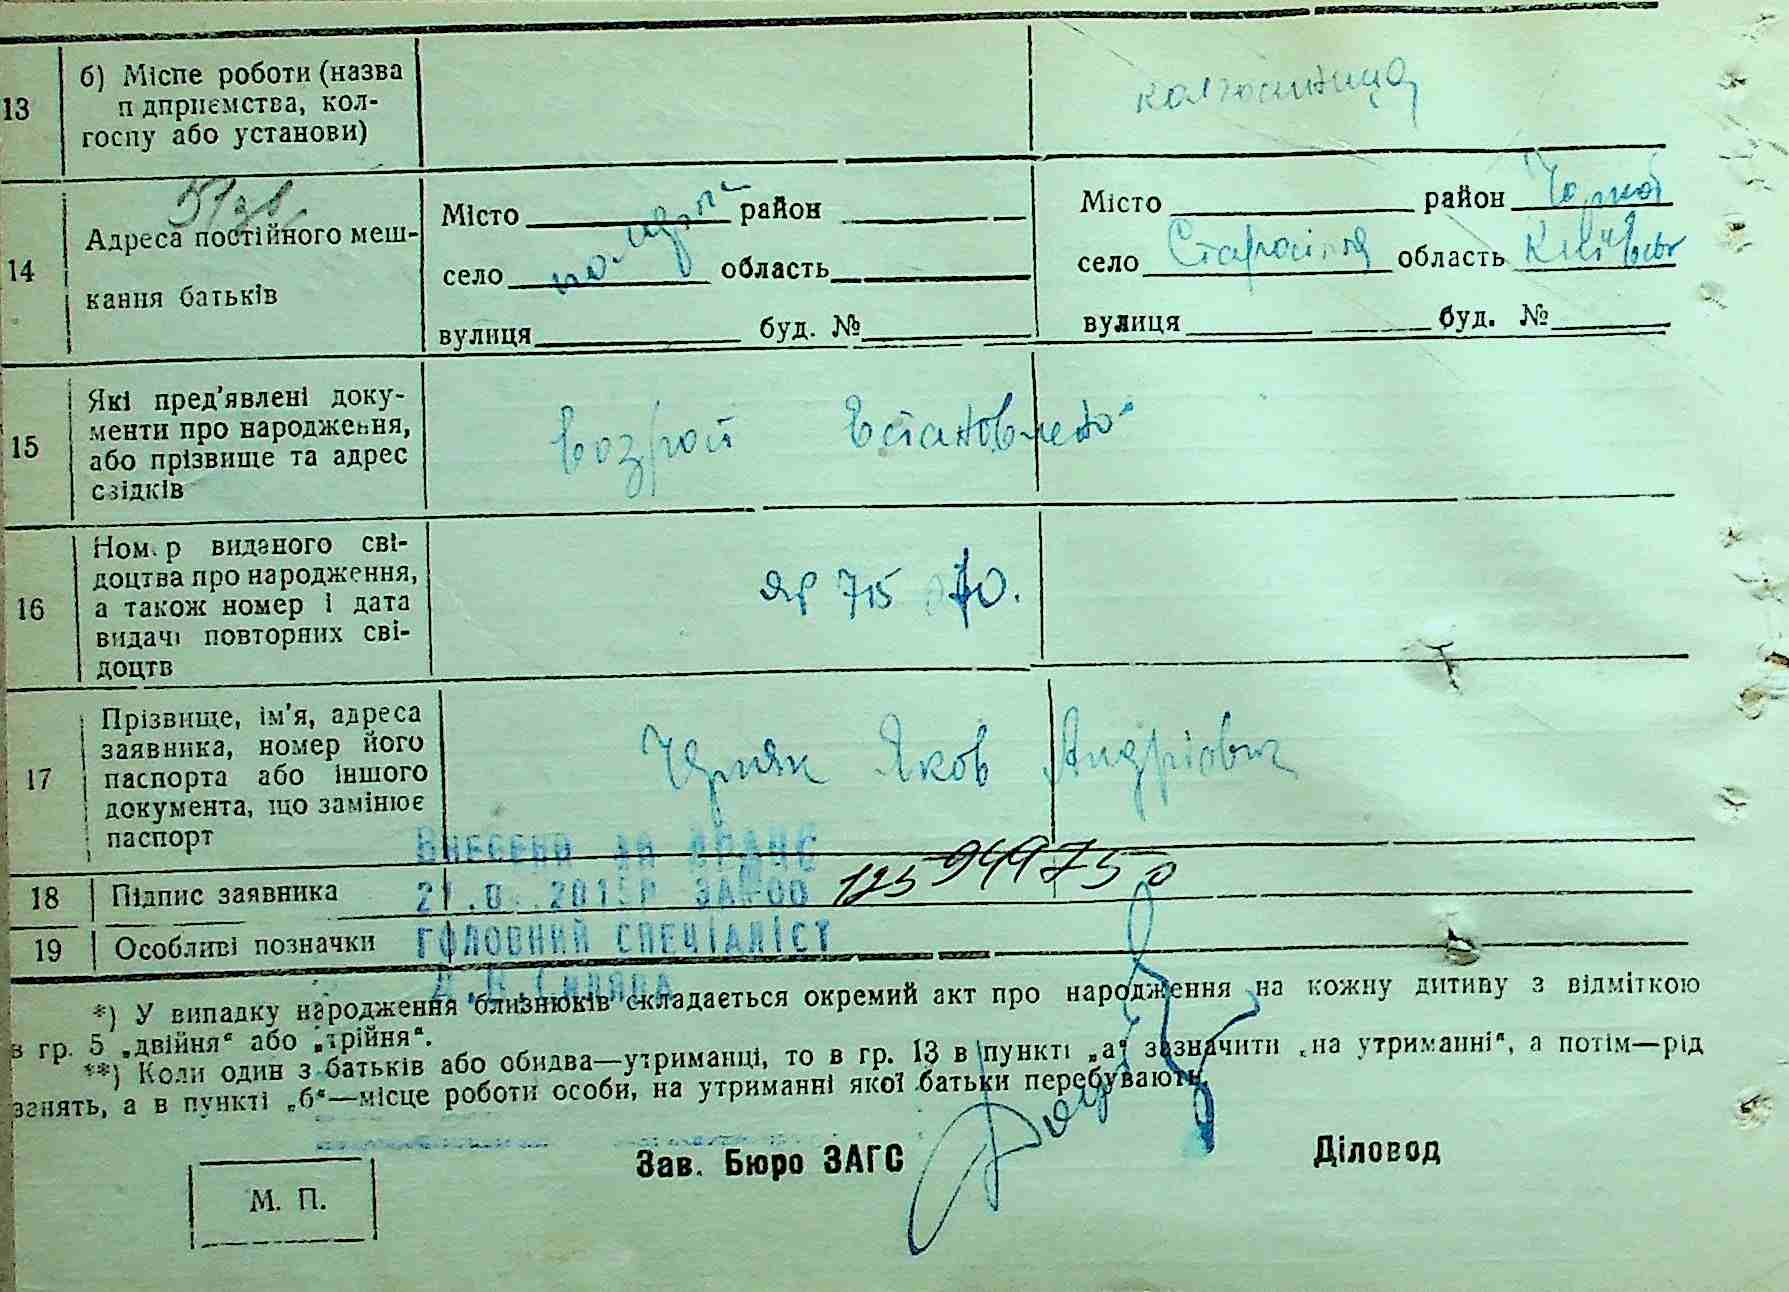 13
б) Місце роботи (назва
п дприємства, кол-
госпу або установи)
колгоспниця
14
Адреса постійного меш-
кання батьків
Місто район
село область
вулиця буд. №
Місто район
село область Київськ
вулиця буд. №
15
Які пред'явлені доку-
менти про народження,
або прізвище та адрес
свідків
возраст встановлено
16
Ном р виданого сві-
доцтва про народження,
а також номер і дата
видачі повторних сві-
доцтв
715
17
Прізвище, ім'я, адреса
заявника, номер його
паспорта або іншого
документа, що замінює
паспорт
Яков Андріович
Внесени до ДРАЦС
18 Підпис заявника
12594975 0
19 Особливі позначки
ГОЛОВНИЙ СПЕЦІАЛІСТ
*) У випадку народження близнюків складається окремий акт про народження на кожну дитину з відміткою
в гр. 5 „двійня“ або „трійня“.
**) Коли один з батьків або обидва—утриманці, то в гр. 13 в пункті „а“ зазначити „на утриманні“, а потім—рід
занять, а в пункті „б“—місце роботи особи, на утриманні якої батьки перебувають.
Зав. Бюро ЗАГС
Діловод
М. П.